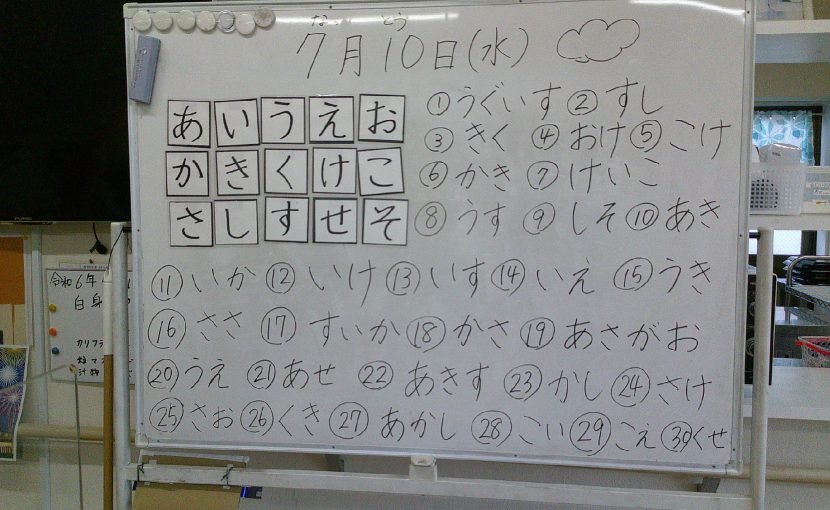 な とう
7月10日(水)
あいうえお
かきくけこ
さしすせそ
①うぐいす ②すし
③きく ④おけ ⑤こけ
⑥かき ⑦けいこ
⑧うす ⑨しそ ⑩あき
⑪いか ⑫いけ ⑬いす ⑭いえ ⑮うき
⑯ささ ⑰すいか ⑱かさ ⑲あさがお
⑳うえ ㉑あせ ㉒あきす ㉓かし ㉔さけ
㉕さお ㉖くき ㉗あかし ㉘こい ㉙こえ ㉚くせ
令和6年
白身
カリフラ